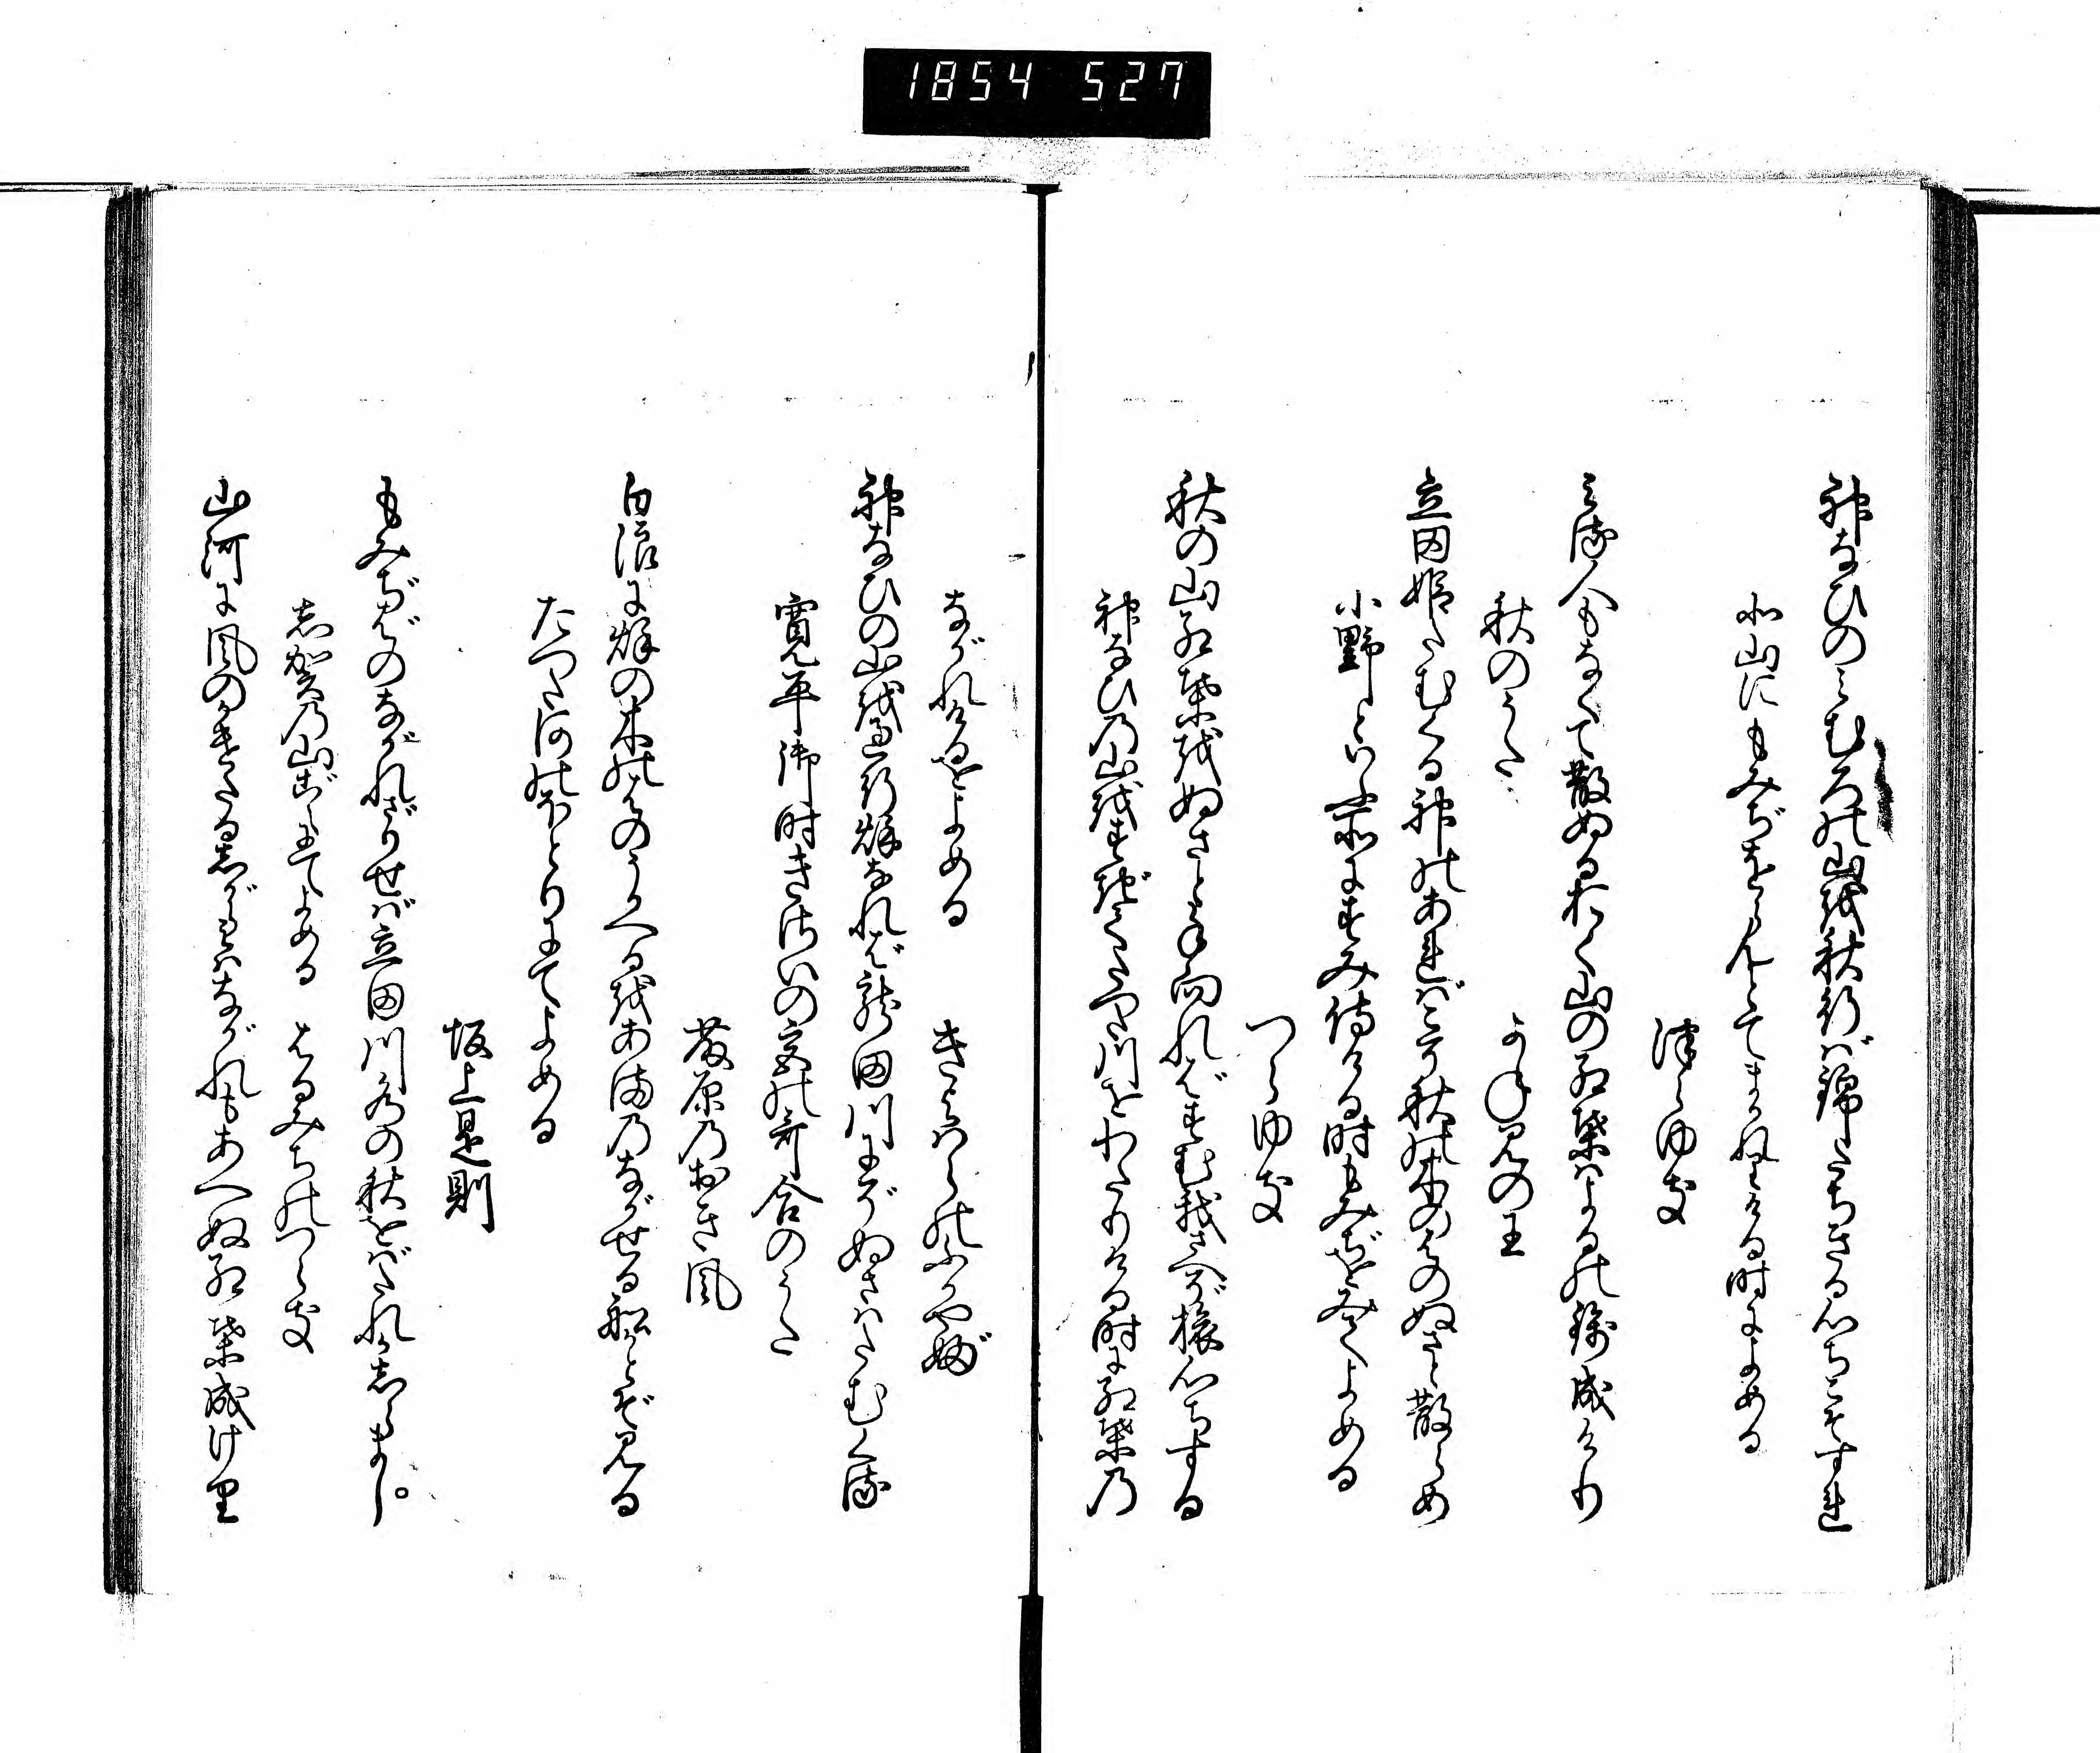 1854 527
神なひのみむろの山を秋行ば錦たちきる心ちこそすれ
北山にもみぢをらんとてまかれりける時によめる
つらゆき
みる人もなくて散ぬるおく山の紅葉はよるの錦成けり
秋のうた
かねみの王
立田姫たむくる神のあればこそ秋の木のはのぬさと散らめ
小野といふ所にすみ侍ける時もみぢをみてよめる
つらゆき
秋の山紅葉をぬさと手向ればすむ我さへぞ旅心ちする
神なひ乃山をすぎてたつた川をわたりける時に紅葉乃
ながれけるをよめる
きよはらのふかやぶ
神なひの山を過行秋なれば龍田川にぞぬさはたむくる
寛平御時きさいの宮の哥合のうた
藤原乃おき風
白浪に秋の木のはのうかべるをあま乃ながせる船かとぞ見る
たつた河のほとりにてよめる
坂上是則
もみぢばのながれざりせば立田川水の秋をばたれかしらまし。
志賀乃山ごえにてよめる
はるみちのつらき
山河に風のかけたるしがらみはながれもあへぬ紅葉成けり